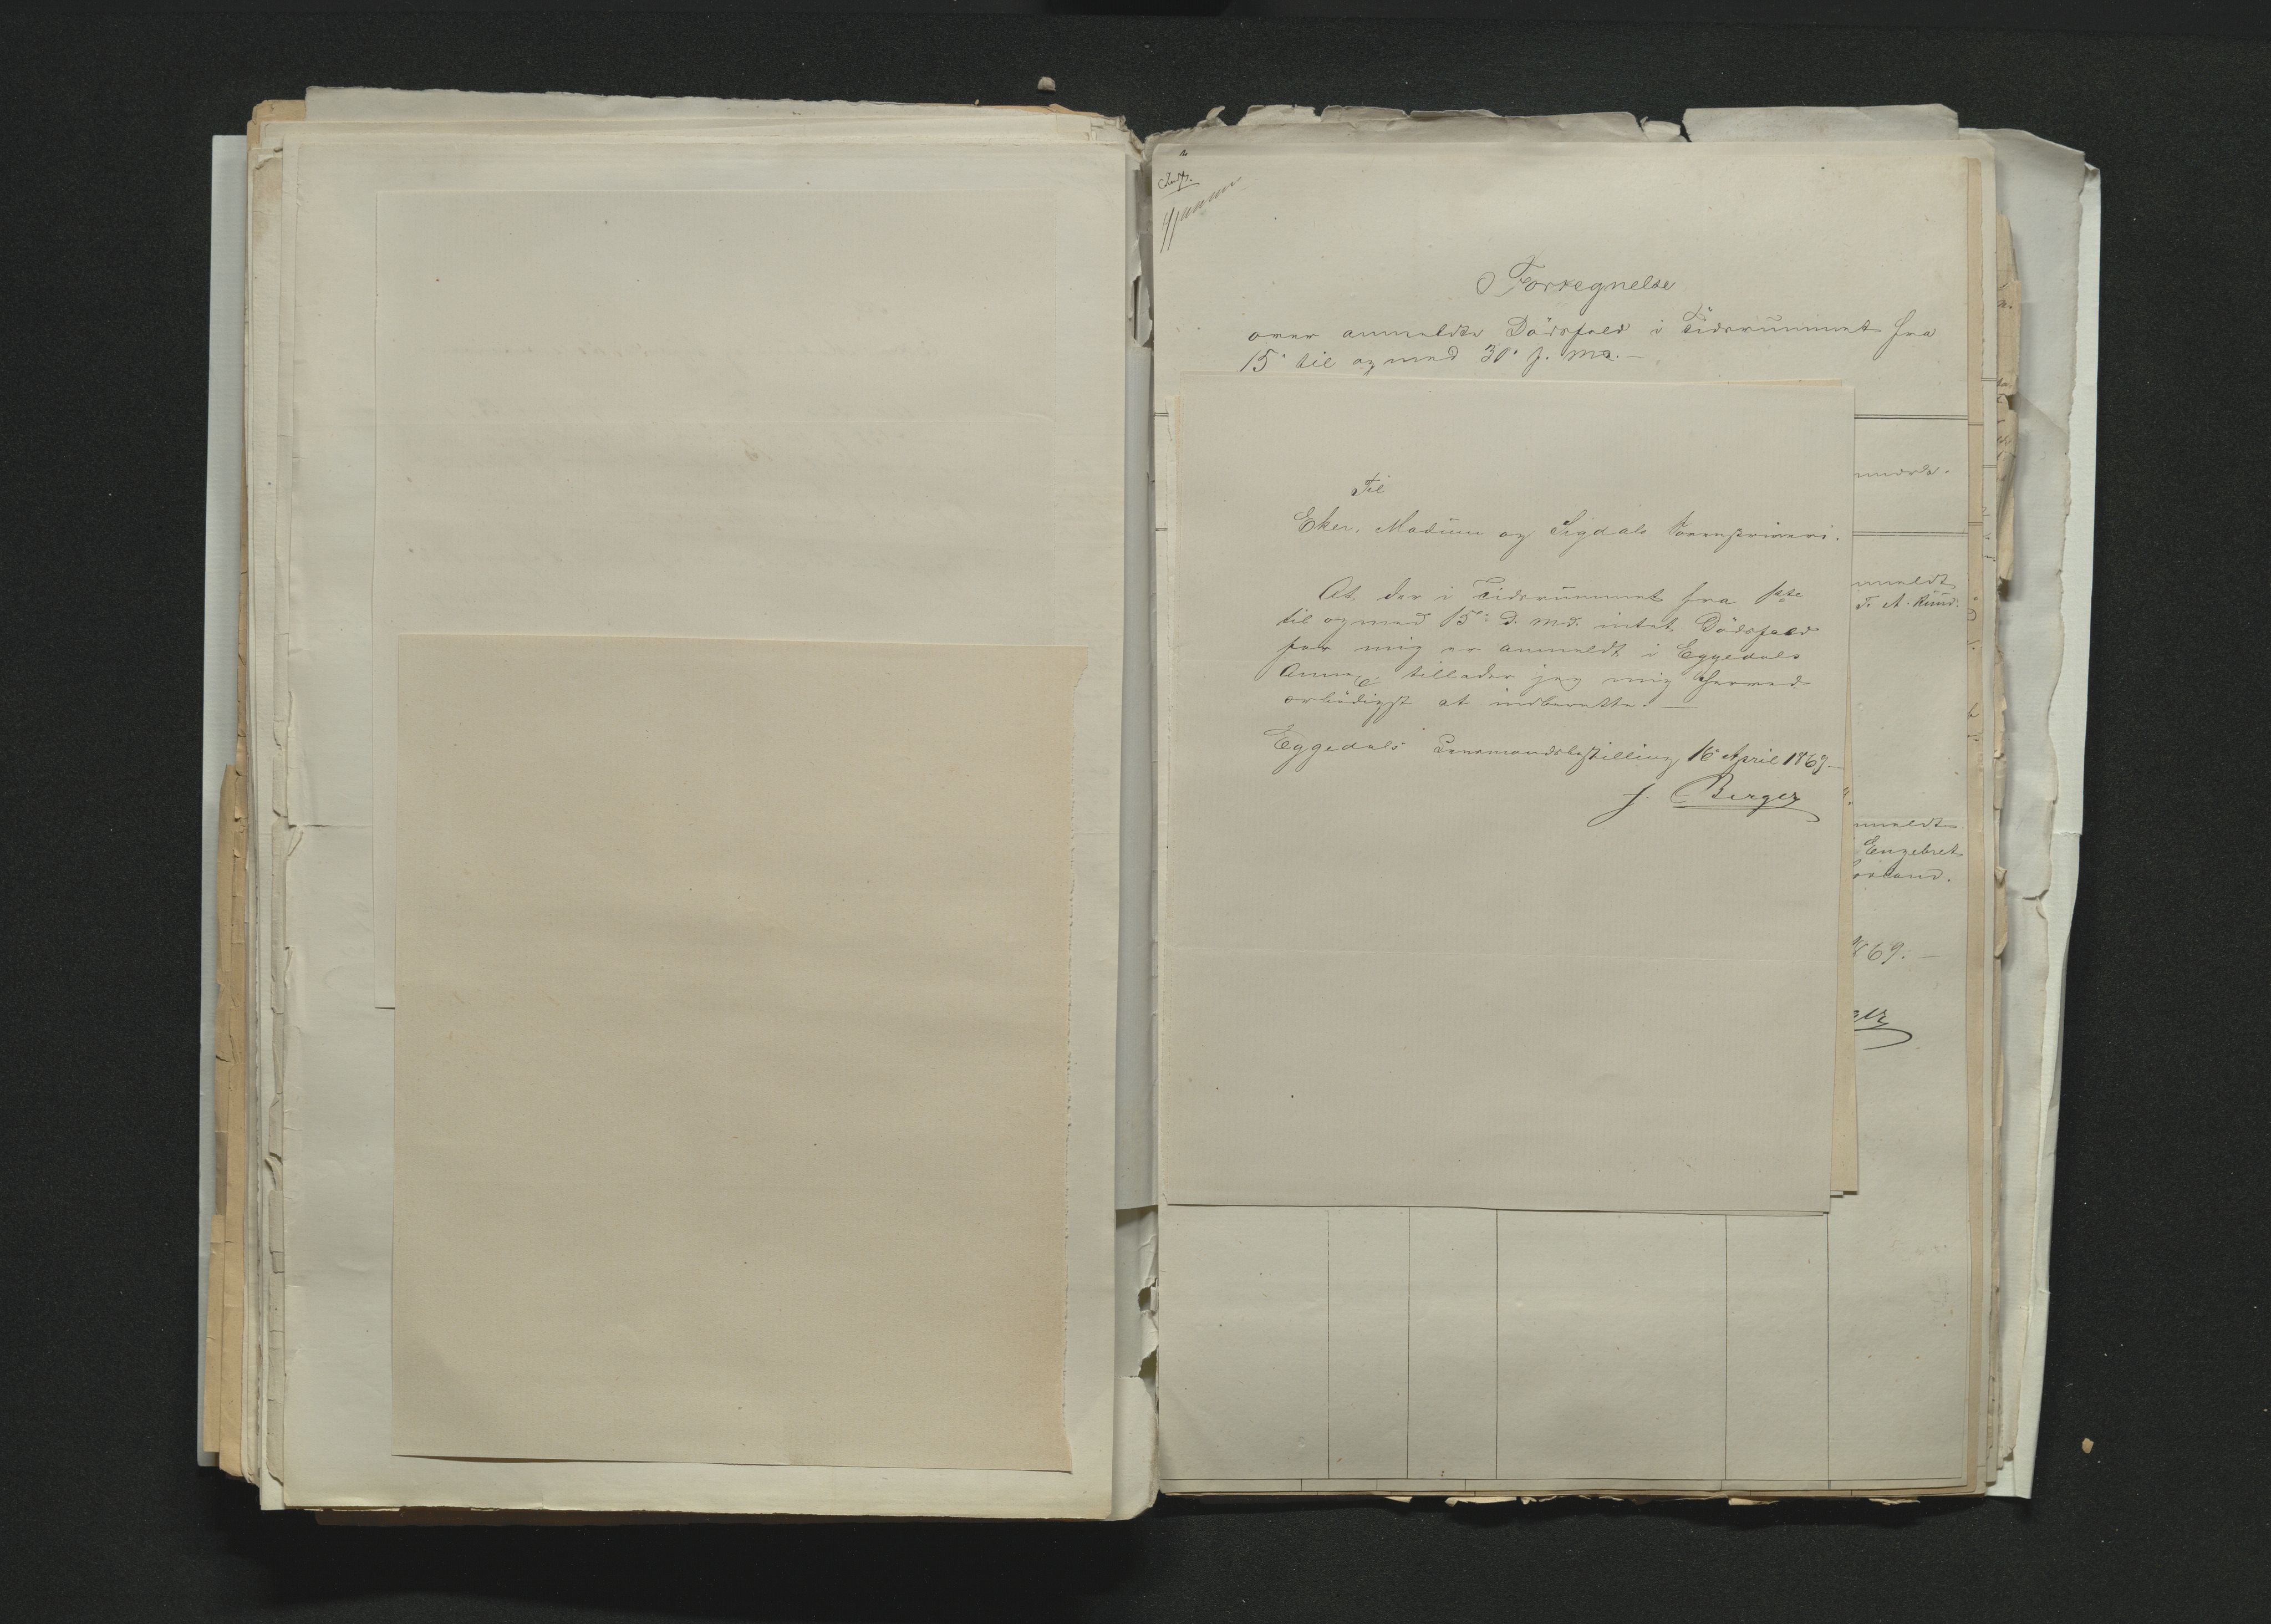 Fortegnelse
over anmeldte Dödsfald i Tidsrummet fra
15de til og med 30de f. Md. —
Til
Eker, Modum og Sigdals Sorenskriveri.
At der i Tidsrummet fra 1ste
til og med 15de d. Md. intet Dödsfald
for mig er anmeldt i Eggedals
Annex, tillader jeg mig herved
ærbödigst at indberette. —
Eggedals Lensmandsbestilling 16 April 1869. —
J. Berger
nmeldt
T. A. Ruud.
nmeldt
Engebret
869. —